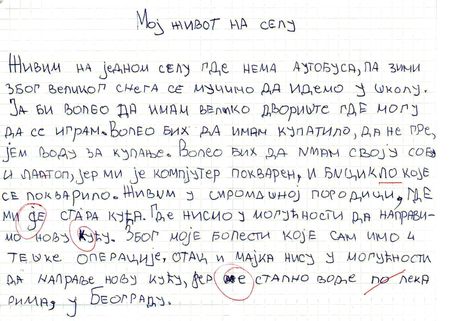 Мој живот на селу
Живим на једном селу где нема аутобуса, па зими
због великог снега се мучимо да идемо у школу.
Ја би волео да имам велико двориште где могу
да се играм. Волео бих да имам купатило, да не гре,
јем воду за купање. Волео бих да имам своју собу
и лаптоп, јер ми је компјутер покварен, и бицикло које
се покварило. Живим у сиромашној породици, где
ми је стара кућа. Где нисмо у могућности да направи-
мо нову кућу. Због моје болести које сам имо 4
тешке операције, отац и мајка нису у могућности
да направе нову кућу, јер ме стално воде по лека
рима, у Београду.